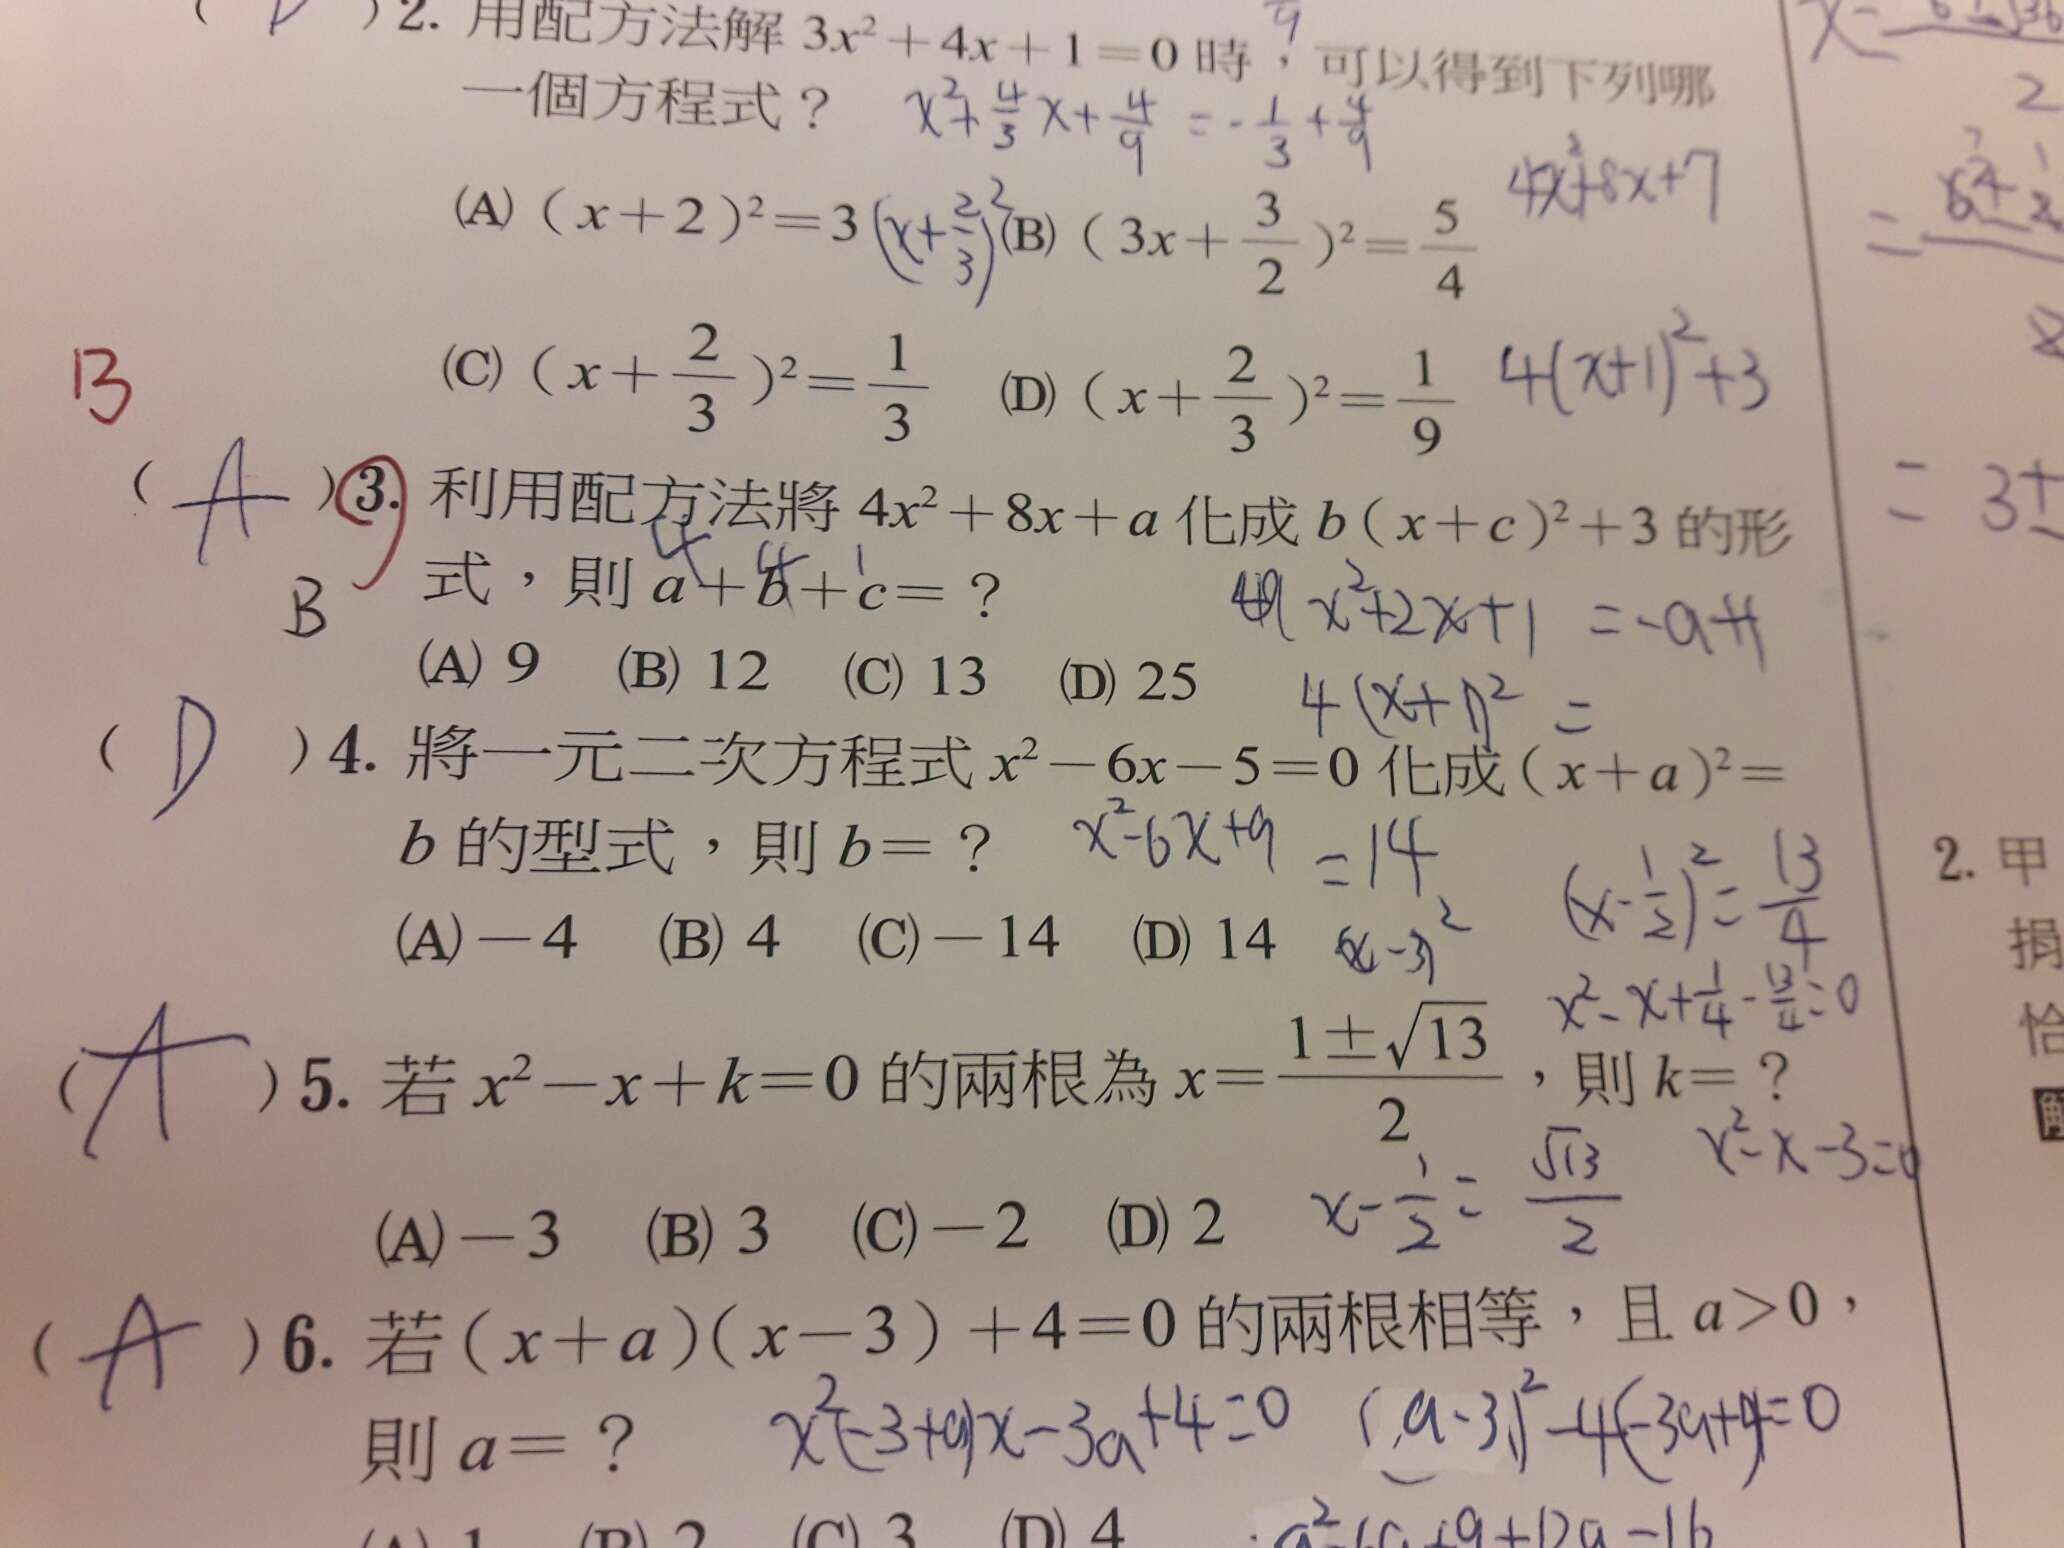 ( D )2. 用配方法解 3x²+4x+1=0 時,可以得到下列哪
一個方程式?
x²+4/3x+4/9 = -1/3+4/9
(A) (x+2)²=3
(x+2/3)²
(B) (3x+3/2)²=5/4
4x²+8x+7
(C) (x+2/3)²=1/3
(D) (x+2/3)²=1/9
4(x+1)²+3
B
( A )3. 利用配方法將 4x²+8x+a 化成 b(x+c)²+3 的形
式,則 a+b+c=?
B
x²+2x+1 = -a+1
(A) 9 (B) 12 (C) 13 (D) 25
4(x+1)² =
( D )4. 將一元二次方程式 x²-6x-5=0 化成(x+a)²=
b 的型式,則 b=?
x²-6x+9 =14
(A)-4 (B) 4 (C)-14 (D) 14
(x-3)²
(x-1/2)²=13/4
x²-x+1/4-13/4=0
( A )5. 若 x²-x+k=0 的兩根為 x=(1±√13)/2,則 k=?
x²-x-3=0
(A)-3 (B) 3 (C)-2 (D) 2
x-1/2=√13/2
( A )6. 若(x+a)(x-3)+4=0 的兩根相等,且 a>0,
則 a=?
x²(-3+a)x-3a+4=0
(a-3)²-4(-3a+4)=0
(A) 1 (B) 2 (C) 3 (D) 4
a²-6a+9+12a-16
2
= 3±
2. 甲
捐
恰
解